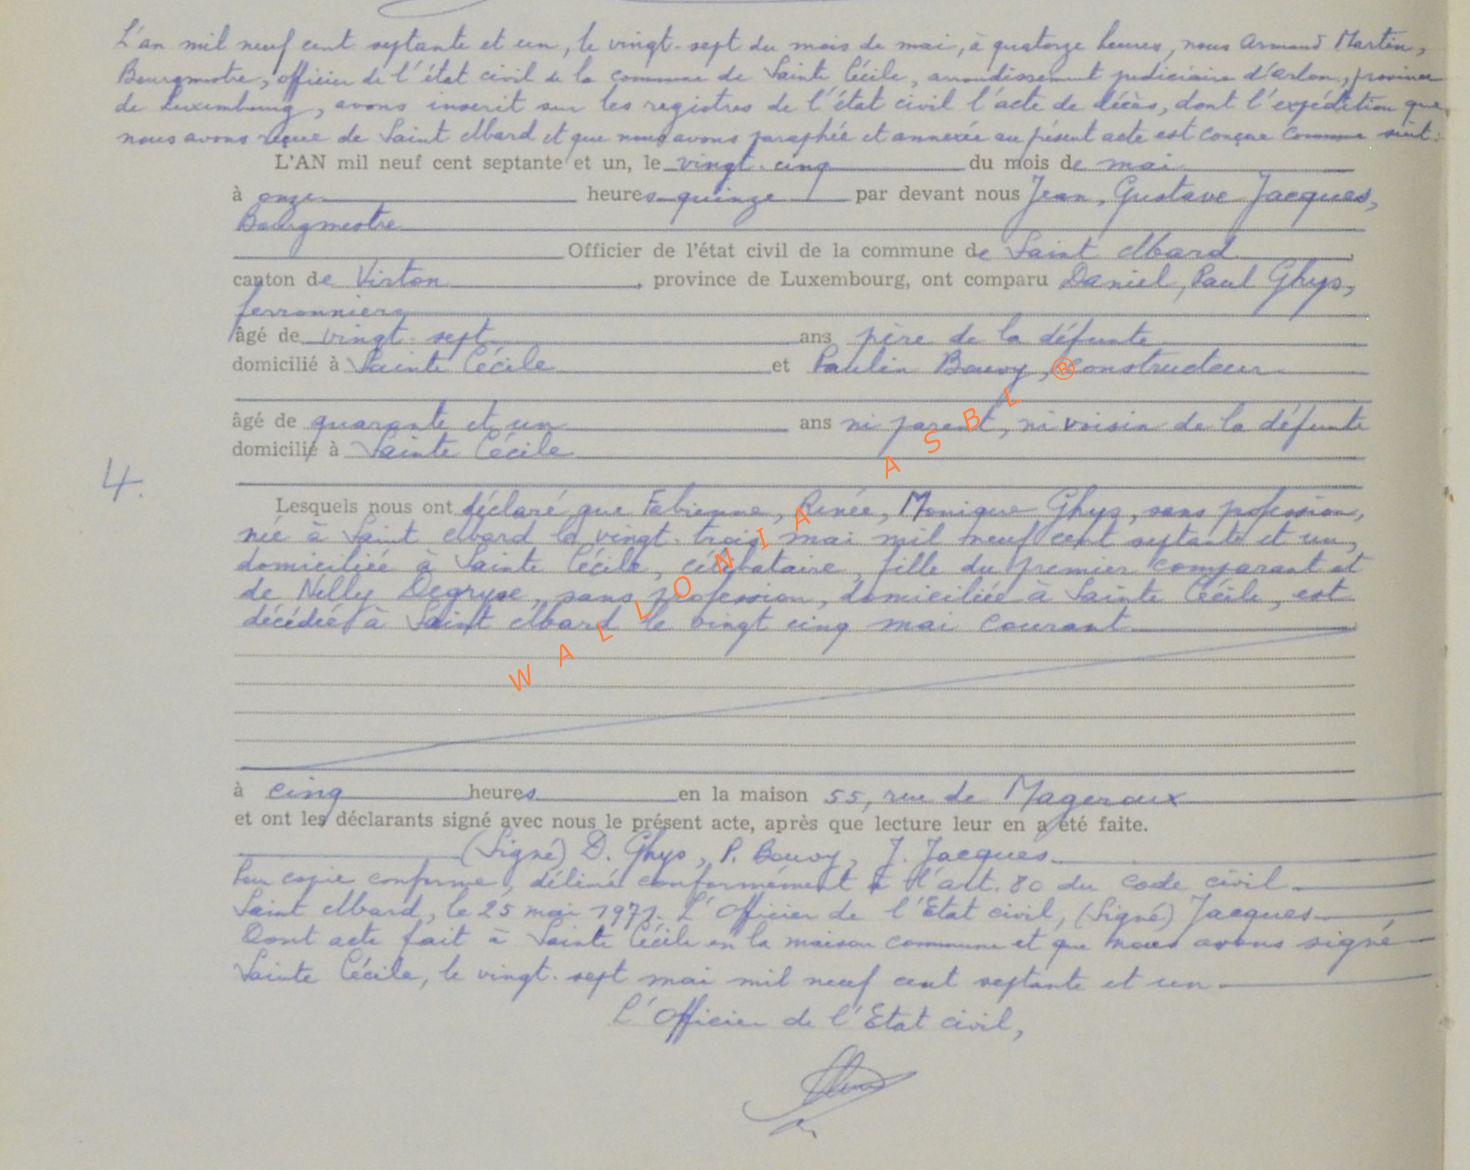 L'an mil neuf cent septante et un, le vingt-sept du mois de mai, à quatorze heures, nous Armand Martin,
Bourgmestre, officier de l'état civil de la commune de Sainte Cécile, arrondissement judiciaire d'Arlon, province
de Luxembourg, avons inscrit sur les registres de l'état civil l'acte de décès, dont l'expédition que
nous avons reçue de Saint Mard et que nous avons paraphée et annexée au présent acte est conçue comme suit :
L'AN mil neuf cent septante et un, le vingt-cinq du mois de mai
à onze heures quinze par devant nous Jean, Gustave Jacques,
Bourgmestre
Officier de l'état civil de la commune de Saint Mard
canton de Virton, province de Luxembourg, ont comparu Daniel, Paul Ghys,
ferronnier
âgé de vingt-sept ans père de la défunte
domicilié à Sainte Cécile et Paulin Bouvy, constructeur
âgé de quarante et un ans ni parent, ni voisin de la défunte
domicilié à Sainte Cécile
4.
Lesquels nous ont déclaré que Fabienne, Renée, Monique Ghys, sans profession,
née à Saint Mard le vingt-trois mai mil neuf cent septante et un,
domiciliée à Sainte Cécile, célibataire, fille du premier comparant et
de Nelly Degryse, sans profession, domiciliée à Sainte Cécile, est
décédée à Saint Mard le vingt cinq mai courant
à cinq heures en la maison 55, rue de Mageroux
et ont les déclarants signé avec nous le présent acte, après que lecture leur en a été faite.
(Signé) D. Ghys, P. Bouvy, J. Jacques
Pour copie conforme, délivré conformément à l'art. 80 du code civil
Saint Mard, le 25 mai 1971. L'Officier de l'Etat civil, (Signé) Jacques
Dont acte fait à Sainte Cécile en la maison commune et que nous avons signé
Sainte Cécile, le vingt-sept mai mil neuf cent septante et un
L'Officier de l'Etat civil,
WALLONIA ASBL ®